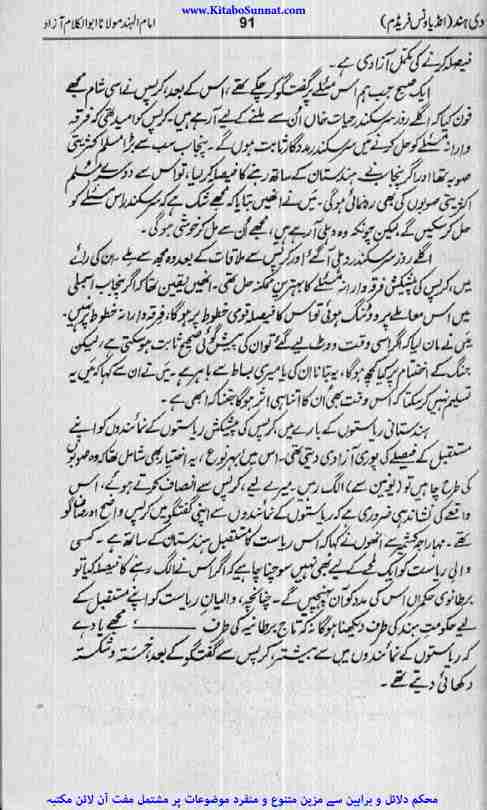 www.KitaboSunnat.com
امام الہند مولانا ابوالکلام آزاد
91
دی ہند (انڈیا ونس فریڈم)
فیصلہ کرنے کی مکمل آزادی ہے۔
ایک صبح جب ہم اس مسئلے پر گفتگو کر چکے تھے، اس کے بعد، کرپس نے اسی شام مجھے
فون کیا کہ اگلے روز سر سکندر حیات خاں اُن سے ملنے کے لیے آ رہے ہیں۔ کرپس کو امید تھی کہ فرقہ
وارانہ مسئلے کو حل کرنے میں سر سکندر مددگار ثابت ہوں گے۔ پنجاب سب سے بڑا مسلم اکثریتی
صوبہ تھا اور اگر پنجاب نے ہندستان کے ساتھ رہنے کا فیصلہ کر لیا، تو اس سے دوسرے مسلم
اکثریتی صوبوں کی بھی رہنمائی ہوگی۔ میں نے انھیں بتایا کہ مجھے شک ہے کہ سر سکندر اس مسئلے کو
حل کر سکیں گے، لیکن چونکہ وہ دہلی آ رہے ہیں، مجھے اُن سے مل کر خوشی ہوگی۔
اگلے روز سر سکندر دہلی آ گئے اور کرپس سے ملاقات کے بعد وہ مجھ سے ملے۔ ان کی رائے
میں، کرپس کی پیشکش فرقہ وارانہ مسئلے کا بہترین ممکنہ حل تھی۔ انھیں یقین تھا کہ اگر پنجاب اسمبلی
میں اس معاملے پر ووٹنگ ہوئی تو اس کا فیصلہ قومی خطوط پر ہوگا، فرقہ وارانہ خطوط پر نہیں۔
میں نے مان لیا کہ اگر اسی وقت ووٹ لیے گئے تو ان کی پیشن گوئی صحیح ثابت ہو سکتی ہے، لیکن
جنگ کے اختتام پر کیا کچھ ہوگا، یہ بتانا ان کی یا میری بساط سے باہر ہے۔ میں نے ان سے کہا کہ میں یہ
تسلیم نہیں کر سکتا کہ اس وقت بھی ان کا اتنا ہی اثر ہوگا جتنا کہ ابھی ہے۔
ہندستانی ریاستوں کے بارے میں، کرپس کی پیشکش ریاستوں کے نمائندوں کو اپنے
مستقبل کے فیصلے کی پوری آزادی دیتی تھی۔ اس میں بہر نوع، یہ اختیار بھی شامل تھا کہ وہ صوبوں
کی طرح چاہیں تو (یونین سے) الگ رہیں۔ میرے لیے، کرپس سے انصاف کرتے ہوئے، اس
واقعے کی نشاندہی ضروری ہے کہ ریاستوں کے نمائندوں سے اپنی گفتگو میں کرپس واضح اور صاف گو
تھے۔ مہاراجہ کشمیر سے انھوں نے کہا کہ اس ریاست کا مستقبل ہندستان کے ساتھ ہے۔ کسی
والیِ ریاست کو ایک لمحے کے لیے بھی نہیں سوچنا چاہیے کہ اگر اس نے الگ رہنے کا فیصلہ کیا تو
برطانوی حکمراں اس کی مدد کو آن پہنچیں گے۔ چنانچہ، والیانِ ریاست کو اپنے مستقبل کے
لیے حکومتِ ہند کی طرف دیکھنا ہوگا نہ کہ تاجِ برطانیہ کی طرف ——— مجھے یاد ہے
کہ ریاستوں کے نمائندوں میں سے بیشتر، کرپس سے گفتگو کے بعد، خستہ و شکستہ
دکھائی دیتے تھے۔
محکم دلائل و براہین سے مزین متنوع و منفرد موضوعات پر مشتمل مفت آن لائن مکتبہ